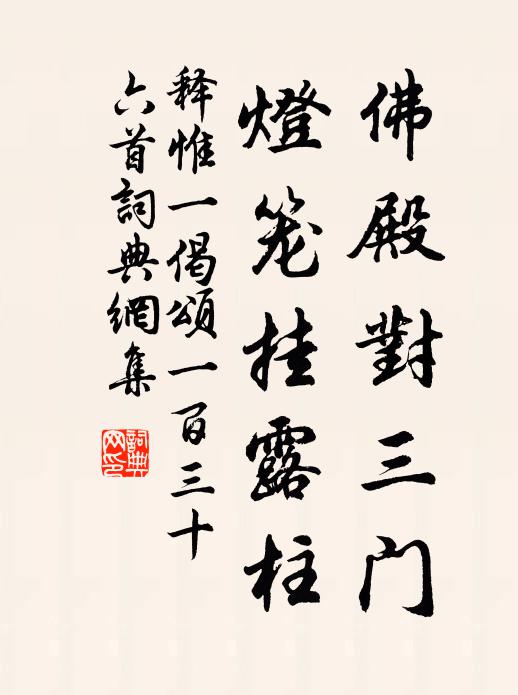 佛殿對三门
燈笼挂露柱
释惟一偈頌一百三十
六首詞典網集
詞典网印